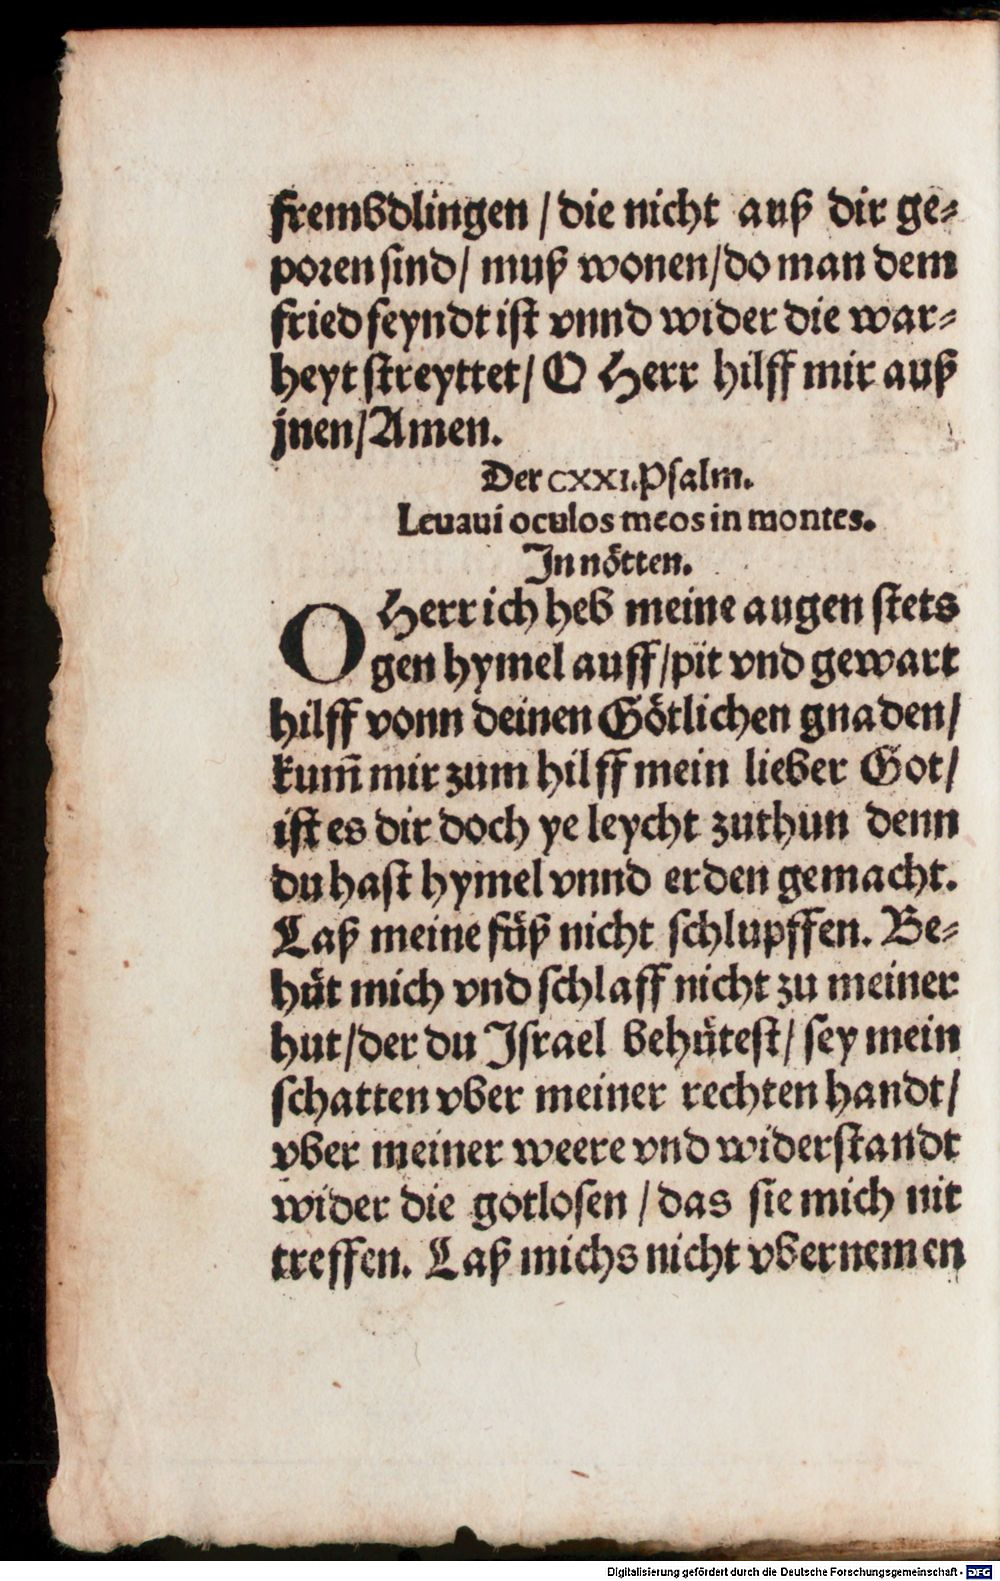 frembdlingen / die nicht auß dir ge⸗
poren sind / muß wonen / do man dem
fried feyndt ist vnnd wider die war⸗
heyt streyttet / O Herr hilff mir auß
jnen / Amen.
Der CXXI. Psalm.
Leuaui oculos meos in montes.
In nötten.
O Herr ich heb meine augen stets
gen hymel auff / pit vnd gewart
hilff vonn deinen Götlichen gnaden /
kum̃ mir zum hilff mein lieber Got /
ist es dir doch ye leycht zuthun denn
du hast hymel vnnd erden gemacht.
Laß meine fuͤß nicht schlupffen. Be⸗
huͤt mich vnd schlaff nicht zu meiner
hut / der du Israel behuͤtest / sey mein
schatten vber meiner rechten handt /
vber meiner weere vnd widerstandt
wider die gotlosen / das sie mich nit
treffen. Laß michs nicht vbernemen
Digitalisierung gefördert durch die Deutsche Forschungsgemeinschaft - DFG